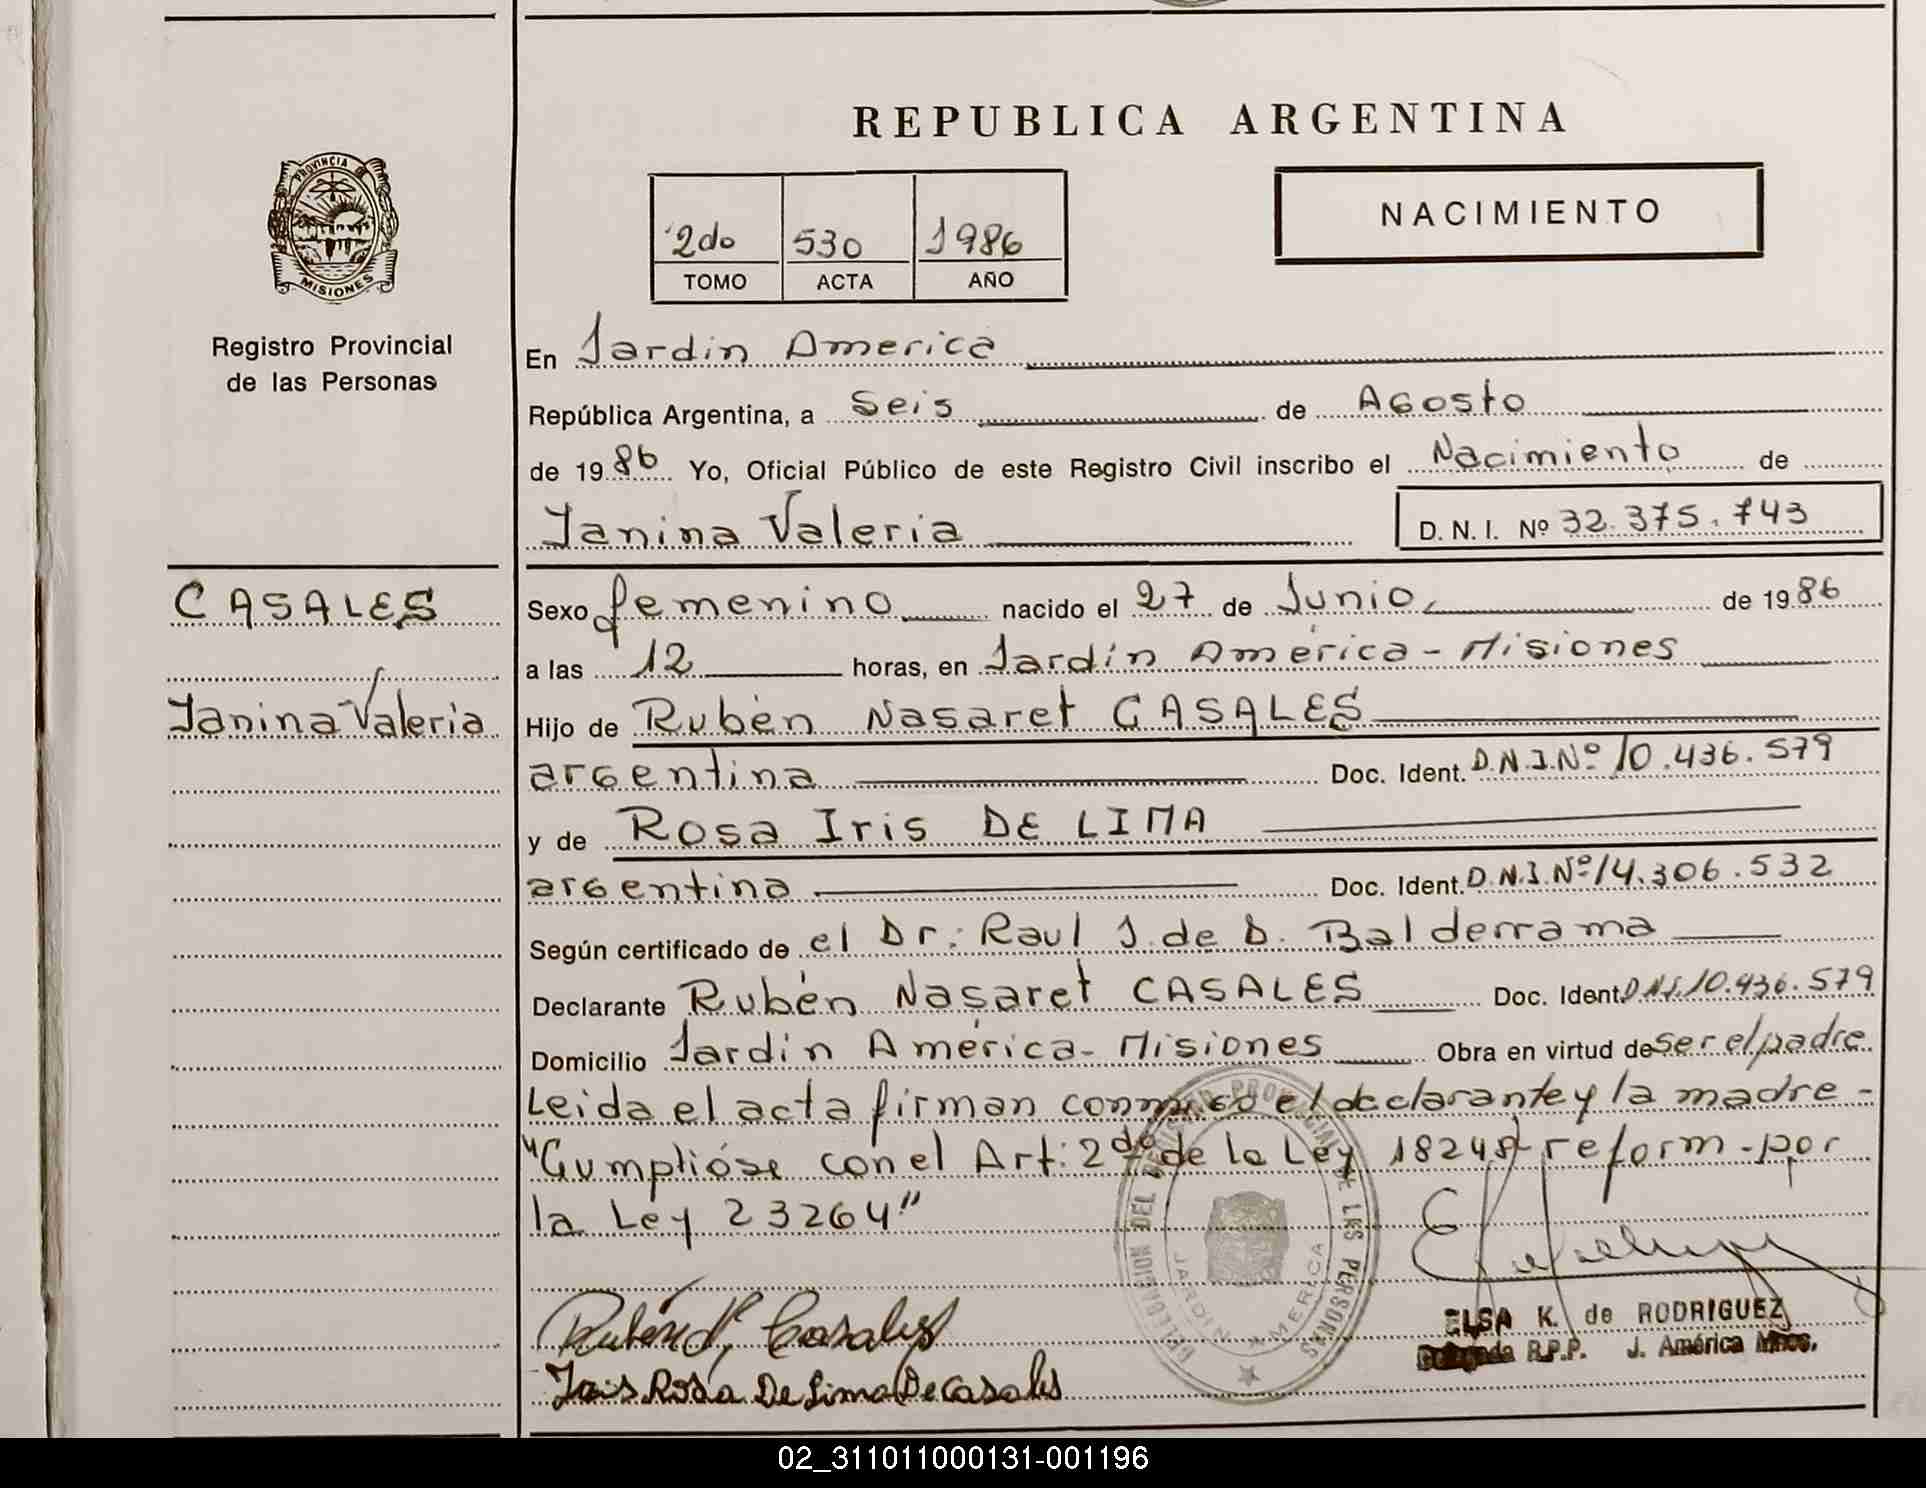 REPUBLICA ARGENTINA
PROVINCIA DE
MISIONES
Registro Provincial
de las Personas
2do 530 1986
TOMO ACTA AÑO
NACIMIENTO
En Jardín America
República Argentina, a Seis de Agosto
de 1986 Yo, Oficial Público de este Registro Civil inscribo el Nacimiento de
Yanina Valeria D. N. I. Nº 32.375.743
CASALES
Yanina Valeria
Sexo femenino nacido el 27 de Junio de 1986
a las 12 horas, en Jardín América - Misiones
Hijo de Rubén Nasaret CASALES
argentina Doc. Ident. D.N.I.Nº 10.436.579
y de Rosa Iris DE LIMA
argentina Doc. Ident. D.N.I.Nº 14.306.532
Según certificado de el Dr: Raul J. de D. Balderrama
Declarante Rubén Nasaret CASALES Doc. Ident. D.N.I. 10.436.579
Domicilio Jardín América - Misiones Obra en virtud de ser el padre
Leida el acta firman conmigo el declarante y la madre -
"Cumplióse con el Art: 2do de la Ley 18248 reform - por
la Ley 23264"
DELEGACION DEL REGISTRO PROVINCIAL DE LAS PERSONAS
JARDIN AMERICA
Rubén Casales
Rosa De Lima De Casales
ELSA K. de RODRIGUEZ
Delegada R.P.P. J. América Mnes.
02_311011000131-001196